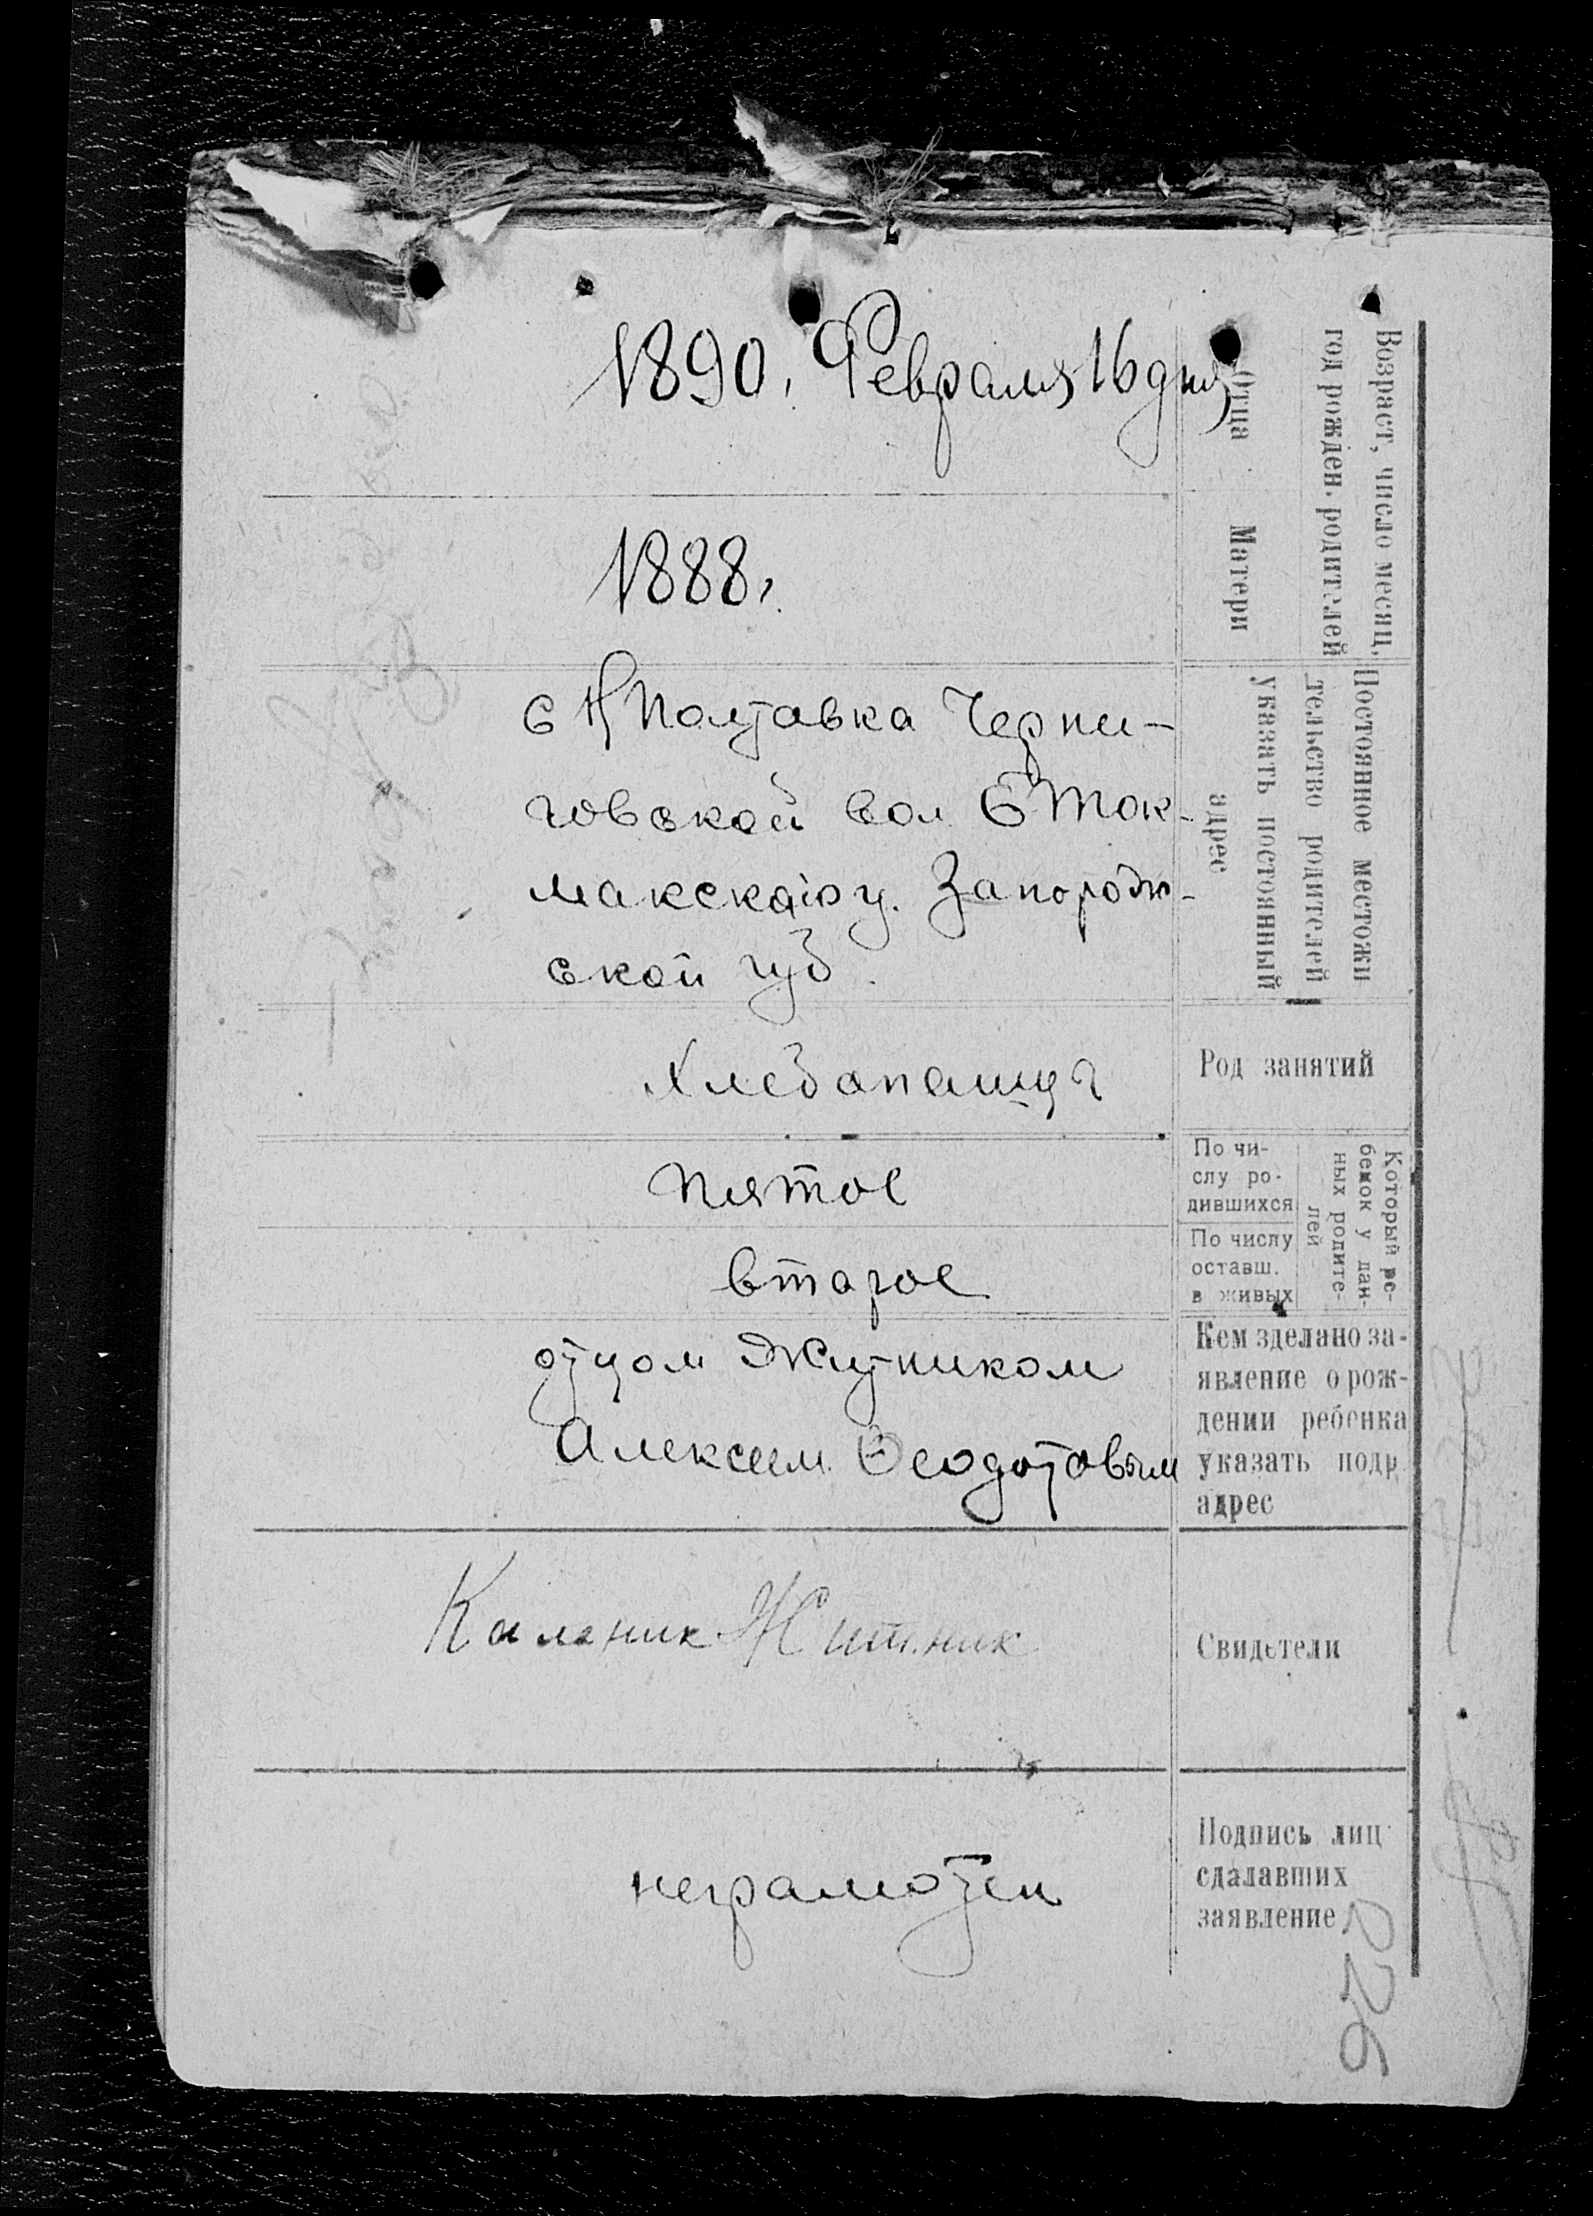 Возраст, число месяц,
год рожден. родителей
Отца
1890. Февраля 16 дня
Матери
1888.
Постоянное местожи
тельство родителей
указать постоянный
адрес
с Н Полтавка Черни-
говской вол Б Ток-
макскаго у. Запорож-
ской губ.
Род занятий
Хлебопашц
Который ре-
бенок у дан-
ных родите-
лей
По чи-
слу ро-
дившихся
пятое
По числу
оставш.
в живых
второе
Кем зделано за-
явление о рож-
дении ребенка
указать подр.
адрес
отцом Житником
Алексеем Ѳеодотовым
Свидетели
Каленик Житник
Подпись лиц
сдалавших
заявление
неграмотен
226